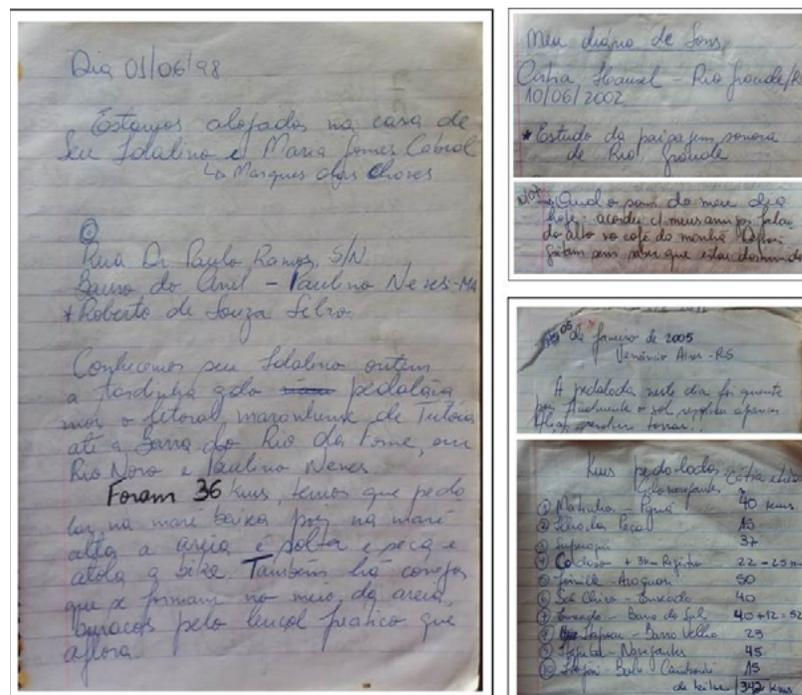 Dia 01/06/98
Estamos alojados na casa de
Seu Idalino e Maria Gomes Cabral
↳ Marques dos Chaves
Rua Dr Paulo Ramos, S/N
Bairro do Anil - Paulino Neves-MA
* Roberto de Souza Silva
Conhecemos seu Idalino ontem
a tardinha qdo pedaláva
mos o litoral maranhense de Tutóia
até a Barra do Rio da Fome, em
Rio Novo e Paulino Neves.
Foram 36 kms, temos que peda
lar na maré baixa pois na maré
alta a areia é solta e seca e
atola a bike. Também há
que se formam no meio da areia,
buracos pelo lençol freático que
aflora.
Meu diário de Sons,
Cintia Hansel - Rio Grande/R
10/06/2002
* Estudo da paisagem sonora
de Rio Grande
Qual o som do meu dia
hoje - acordei c/ meus amigos falan
do alto no café da manhã. Depois
gritam sem saber que estou dormindo
05 de janeiro de 2005
Venâncio Aires - RS
A pedalada neste dia foi quente
o sol resolveu aparecer
Kms pedalados
40 kms
② Ilha das Peças 15
③ Superagui 37
④ Cardoso + 3km Registro 22 - 25
⑤ Joinville - Araquari 50
⑥ São Chico - Enseada 40
⑦ Enseada - Barra do Sul 40+12=52
⑧ Itapocu - Barra Velha 23
⑨ - Navegantes 45
⑩ Itajaí - Baln Camboriú 15
de bike 342 kms